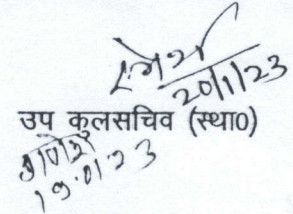 20/1/23
उप कुलसचिव (स्था0)
19.01.23